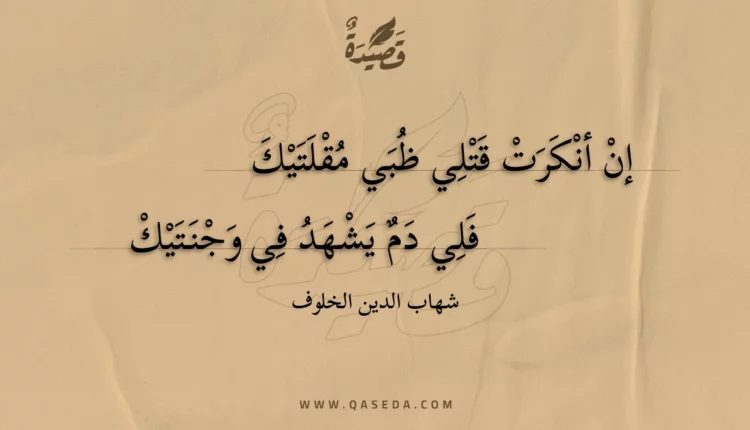 قَصِيدَةٌ
إنْ أنْكَرَتْ قَتْلِي ظُبَي مُقْلَتَيْكَ
فَلِي دَمٌ يَشْهَدُ فِي وَجْنَتَيْكْ
شهاب الدين الخلوف
WWW.QASEDA.COM